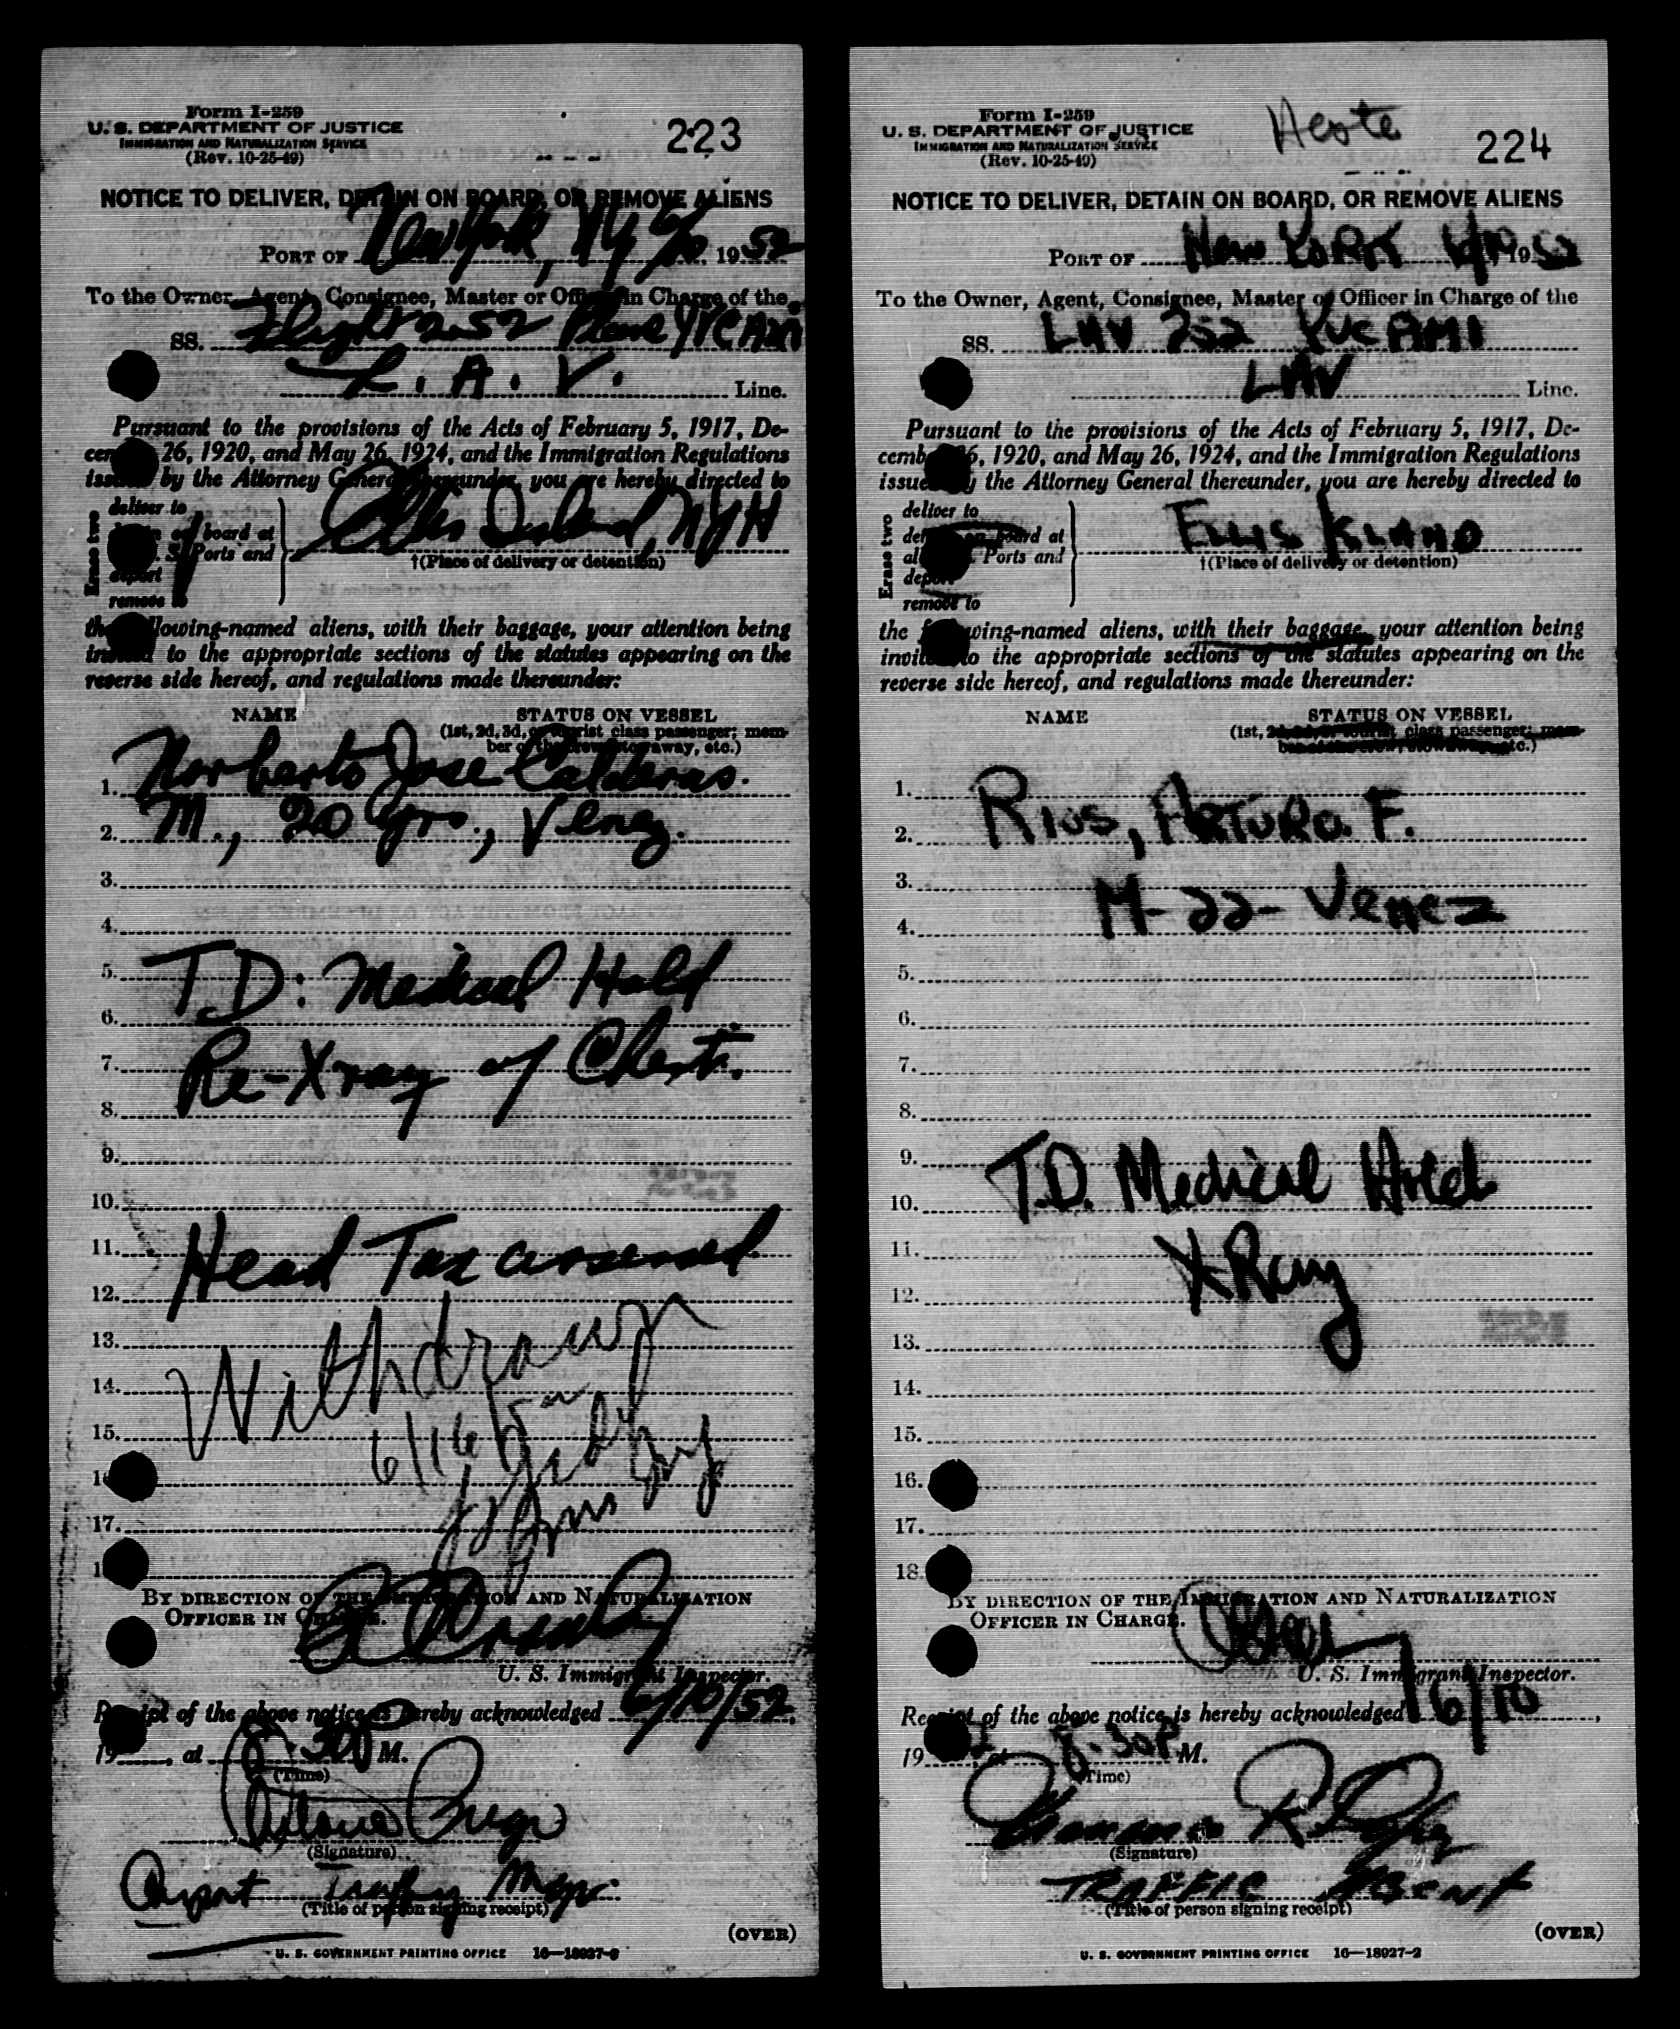 Form I-259
U. S. DEPARTMENT OF JUSTICE
IMMIGRATION AND NATURALIZATION SERVICE
(Rev. 10-25-49)
223
NOTICE TO DELIVER, DETAIN ON BOARD, OR REMOVE ALIENS
PORT OF New York, NY 6/10, 1952
To the Owner, Agent, Consignee, Master or Officer in Charge of the
SS. Flight 252 Plane YVC AMI
L. A. V. Line.
Pursuant to the provisions of the Acts of February 5, 1917, De-
cember 26, 1920, and May 26, 1924, and the Immigration Regulations
issued by the Attorney General thereunder, you are hereby directed to
Erase two
deliver to
detain on board at
Ports and
deport
remove to
Ellis Island, NYH
†(Place of delivery or detention)
the following-named aliens, with their baggage, your attention being
invited to the appropriate sections of the statutes appearing on the
reverse side hereof, and regulations made thereunder:
NAME
STATUS ON VESSEL
(1st, 2d, 3d, or tourist class passenger; mem-
ber of the crew, stowaway, etc.)
1. Norberto Jose Calderas.
2. M., 20 yrs., Venez.
3.
4.
5. T.D: Medical Hold
6.
7. Re-Xray of Chest.
8.
9.
10.
11. Head Tax assessed
12.
13. Withdrawn
14.
15. 6/16
16
17.
1
BY DIRECTION OF THE IMMIGRATION AND NATURALIZATION
OFFICER IN CHARGE.
U. S. Immigrant Inspector.
Receipt of the above notice is hereby acknowledged 6/10/52,
19, at 8:30P M.
(Time)
(Signature)
Airport Traffic Mgr.
(Title of person signing receipt)
(OVER)
U. S. GOVERNMENT PRINTING OFFICE 16—18927-2
Form I-259
U. S. DEPARTMENT OF JUSTICE
IMMIGRATION AND NATURALIZATION SERVICE
(Rev. 10-25-49)
224
NOTICE TO DELIVER, DETAIN ON BOARD, OR REMOVE ALIENS
PORT OF NEW YORK 6/10 1952
To the Owner, Agent, Consignee, Master or Officer in Charge of the
SS. LAV 252 YVC AMI
LAV Line.
Pursuant to the provisions of the Acts of February 5, 1917, De-
cember 26, 1920, and May 26, 1924, and the Immigration Regulations
issued by the Attorney General thereunder, you are hereby directed to
Erase two
deliver to
detain on board at
Ports and
deport
remove to
ELLIS ISLAND
†(Place of delivery or detention)
the following-named aliens, with their baggage, your attention being
invited to the appropriate sections of the statutes appearing on the
reverse side hereof, and regulations made thereunder:
NAME
STATUS ON VESSEL
(1st, 2d, 3d, or tourist class passenger; mem-
ber of the crew, stowaway, etc.)
1.
2. RIOS, ARTURO. F.
3.
4. M-22-Venez
5.
6.
7.
8.
9. T.D. Medical Hold
10.
11. X-Ray
12.
13.
14.
15.
16.
17.
18
BY DIRECTION OF THE IMMIGRATION AND NATURALIZATION
OFFICER IN CHARGE.
U. S. Immigrant Inspector.
Receipt of the above notice is hereby acknowledged 6/10,
19, at 8:30P M.
(Time)
(Signature)
TRAFFIC AGENT
(Title of person signing receipt)
(OVER)
U. S. GOVERNMENT PRINTING OFFICE 16—18927-2